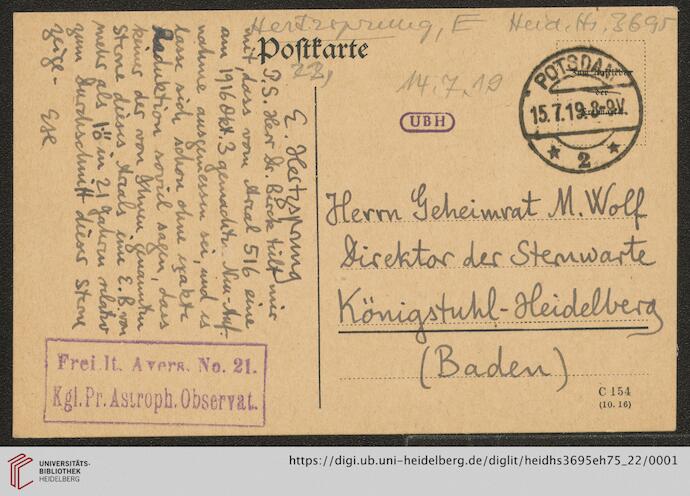 Hertzsprung, E Heid. Hs. 3695
Postkarte
22,
14.7.19
UBH
POTSDAM
15.7.19.8-9V.
* 2 *
E. Hertzsprung
P.S. Herr Dr. Birck teilt mir
mit dass vom Areal 516 eine
am 1916 Okt. 3 gemachte Neu-Auf-
nahme ausgemessen sei, und es
lasse sich schon ohne exakte
Reduktion soviel sagen, dass
keiner der von Ihnen genannten
Sterne dieses Areals eine E.B. von
mehr als 1".0 in 21 Jahren relativ
zum Durchschnitt dieser Sterne
zeige -
Herrn Geheimrat M. Wolf
Direktor der Sternwarte
Königstuhl-Heidelberg
(Baden)
Frei lt. Avers. No. 21.
Kgl. Pr. Astroph. Observat.
C 154
(10. 16)
UNIVERSITÄTS-
BIBLIOTHEK
HEIDELBERG
https://digi.ub.uni-heidelberg.de/diglit/heidhs3695eh75_22/0001